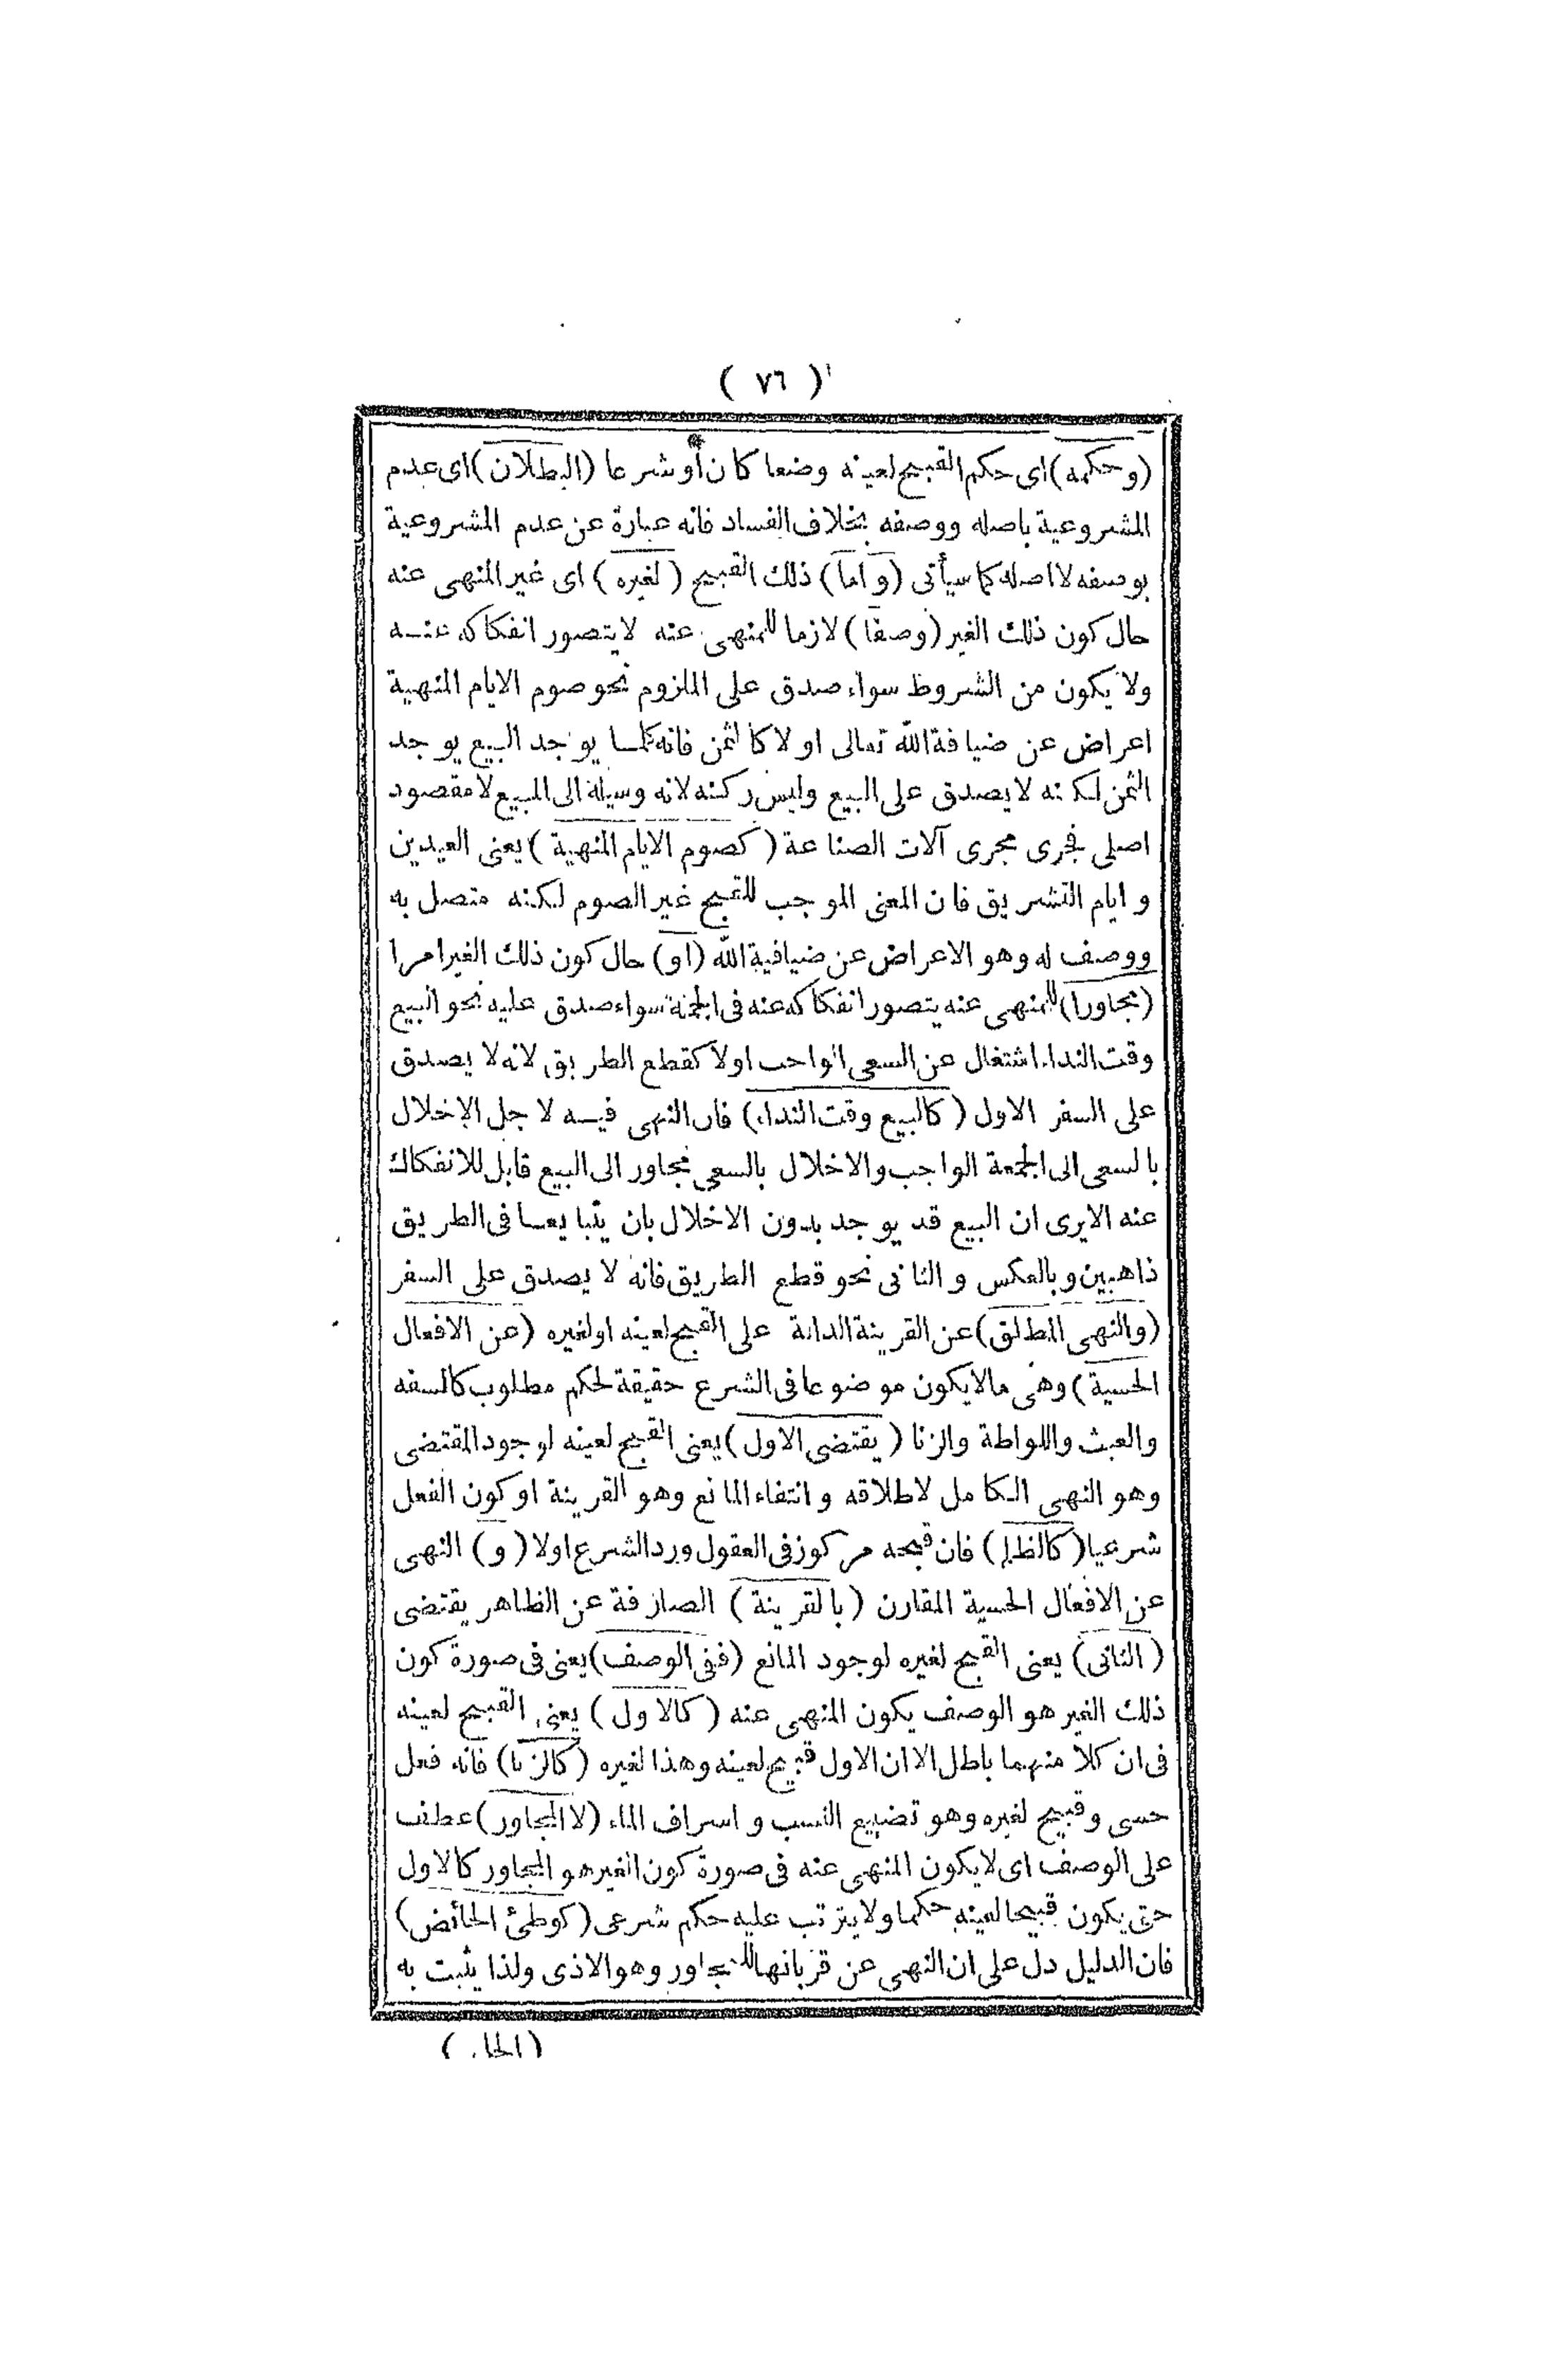 ( ٧٦ )
(وحكمه) اى حكم القبيح لعينه وضعا كان أو شرعا (البطلان) اى عدم
المشروعية باصله ووصفه بخلاف الفساد فانه عبارة عن عدم المشروعية
بوصفه لا اصله كما سيأتى (واما) ذلك القبيح (لغيره) اى غير المنهى عنه
حال كون ذلك الغير (وصفا) لازما للمنهى عنه لا يتصور انفكاكه عنه
ولا يكون من الشروط سواء صدق على الملزوم نحو صوم الايام المنهية
اعراض عن ضيافة الله تعالى او لا كالثمن فانه كلما يوجد البيع يوجد
الثمن لكنه لا يصدق على البيع وليس ركنه لانه وسيلة الى المبيع لا مقصود
اصلى فجرى مجرى آلات الصناعة (كصوم الايام المنهية) يعنى العيدين
وايام التشريق فان المعنى الموجب للقبح غير الصوم لكنه متصل به
ووصف له وهو الاعراض عن ضيافية الله (او) حال كون ذلك الغير امرا
(مجاورا) للمنهى عنه يتصور انفكاكه عنه فى الجملة سواء صدق عليه نحو البيع
وقت النداء اشتغال عن السعى الواجب اولا كقطع الطريق لانه لا يصدق
على السفر الاول (كالبيع وقت النداء) فان النهى فيه لاجل الاخلال
بالسعى الى الجمعة الواجب والاخلال بالسعى مجاور الى البيع قابل للانفكاك
عنه الايرى ان البيع قد يوجد بدون الاخلال بان يتبايعا فى الطريق
ذاهبين وبالعكس والثانى نحو قطع الطريق فانه لا يصدق على السفر
(والنهى المطلق) عن القرينة الدالة على القبح لعينه او لغيره (عن الافعال
الحسية) وهى مالا يكون موضوعا فى الشرع حقيقة لحكم مطلوب كالسفه
والعبث واللواطة والزنا (يقتضى الاول) يعنى القبح لعينه لوجود المقتضى
وهو النهى الكامل لاطلاقه وانتفاء المانع وهو القرينة او كون الفعل
شرعيا (كالظلم) فان قبحه مركوز فى العقول ورد الشرع اولا (و) النهى
عن الافعال الحسية المقارن (بالقرينة) الصارفة عن الظاهر يقتضى
(الثانى) يعنى القبح لغيره لوجود المانع (ففى الوصف) يعنى فى صورة كون
ذلك الغير هو الوصف يكون المنهى عنه (كالاول) يعنى القبيح لعينه
فى ان كلا منهما باطل الا ان الاول قبيح لعينه وهذا لغيره (كالزنا) فانه فعل
حسى وقبيح لغيره وهو تضييع النسب واسراف الماء (لا المجاور) عطف
على الوصف اى لا يكون المنهى عنه فى صورة كون الغير هو المجاور كالاول
حتى يكون قبيحا لعينه حكما ولا يترتب عليه حكم شرعى (كوطئ الحائض)
فان الدليل دل على ان النهى عن قربانها للمجاور وهو الاذى ولذا يثبت به